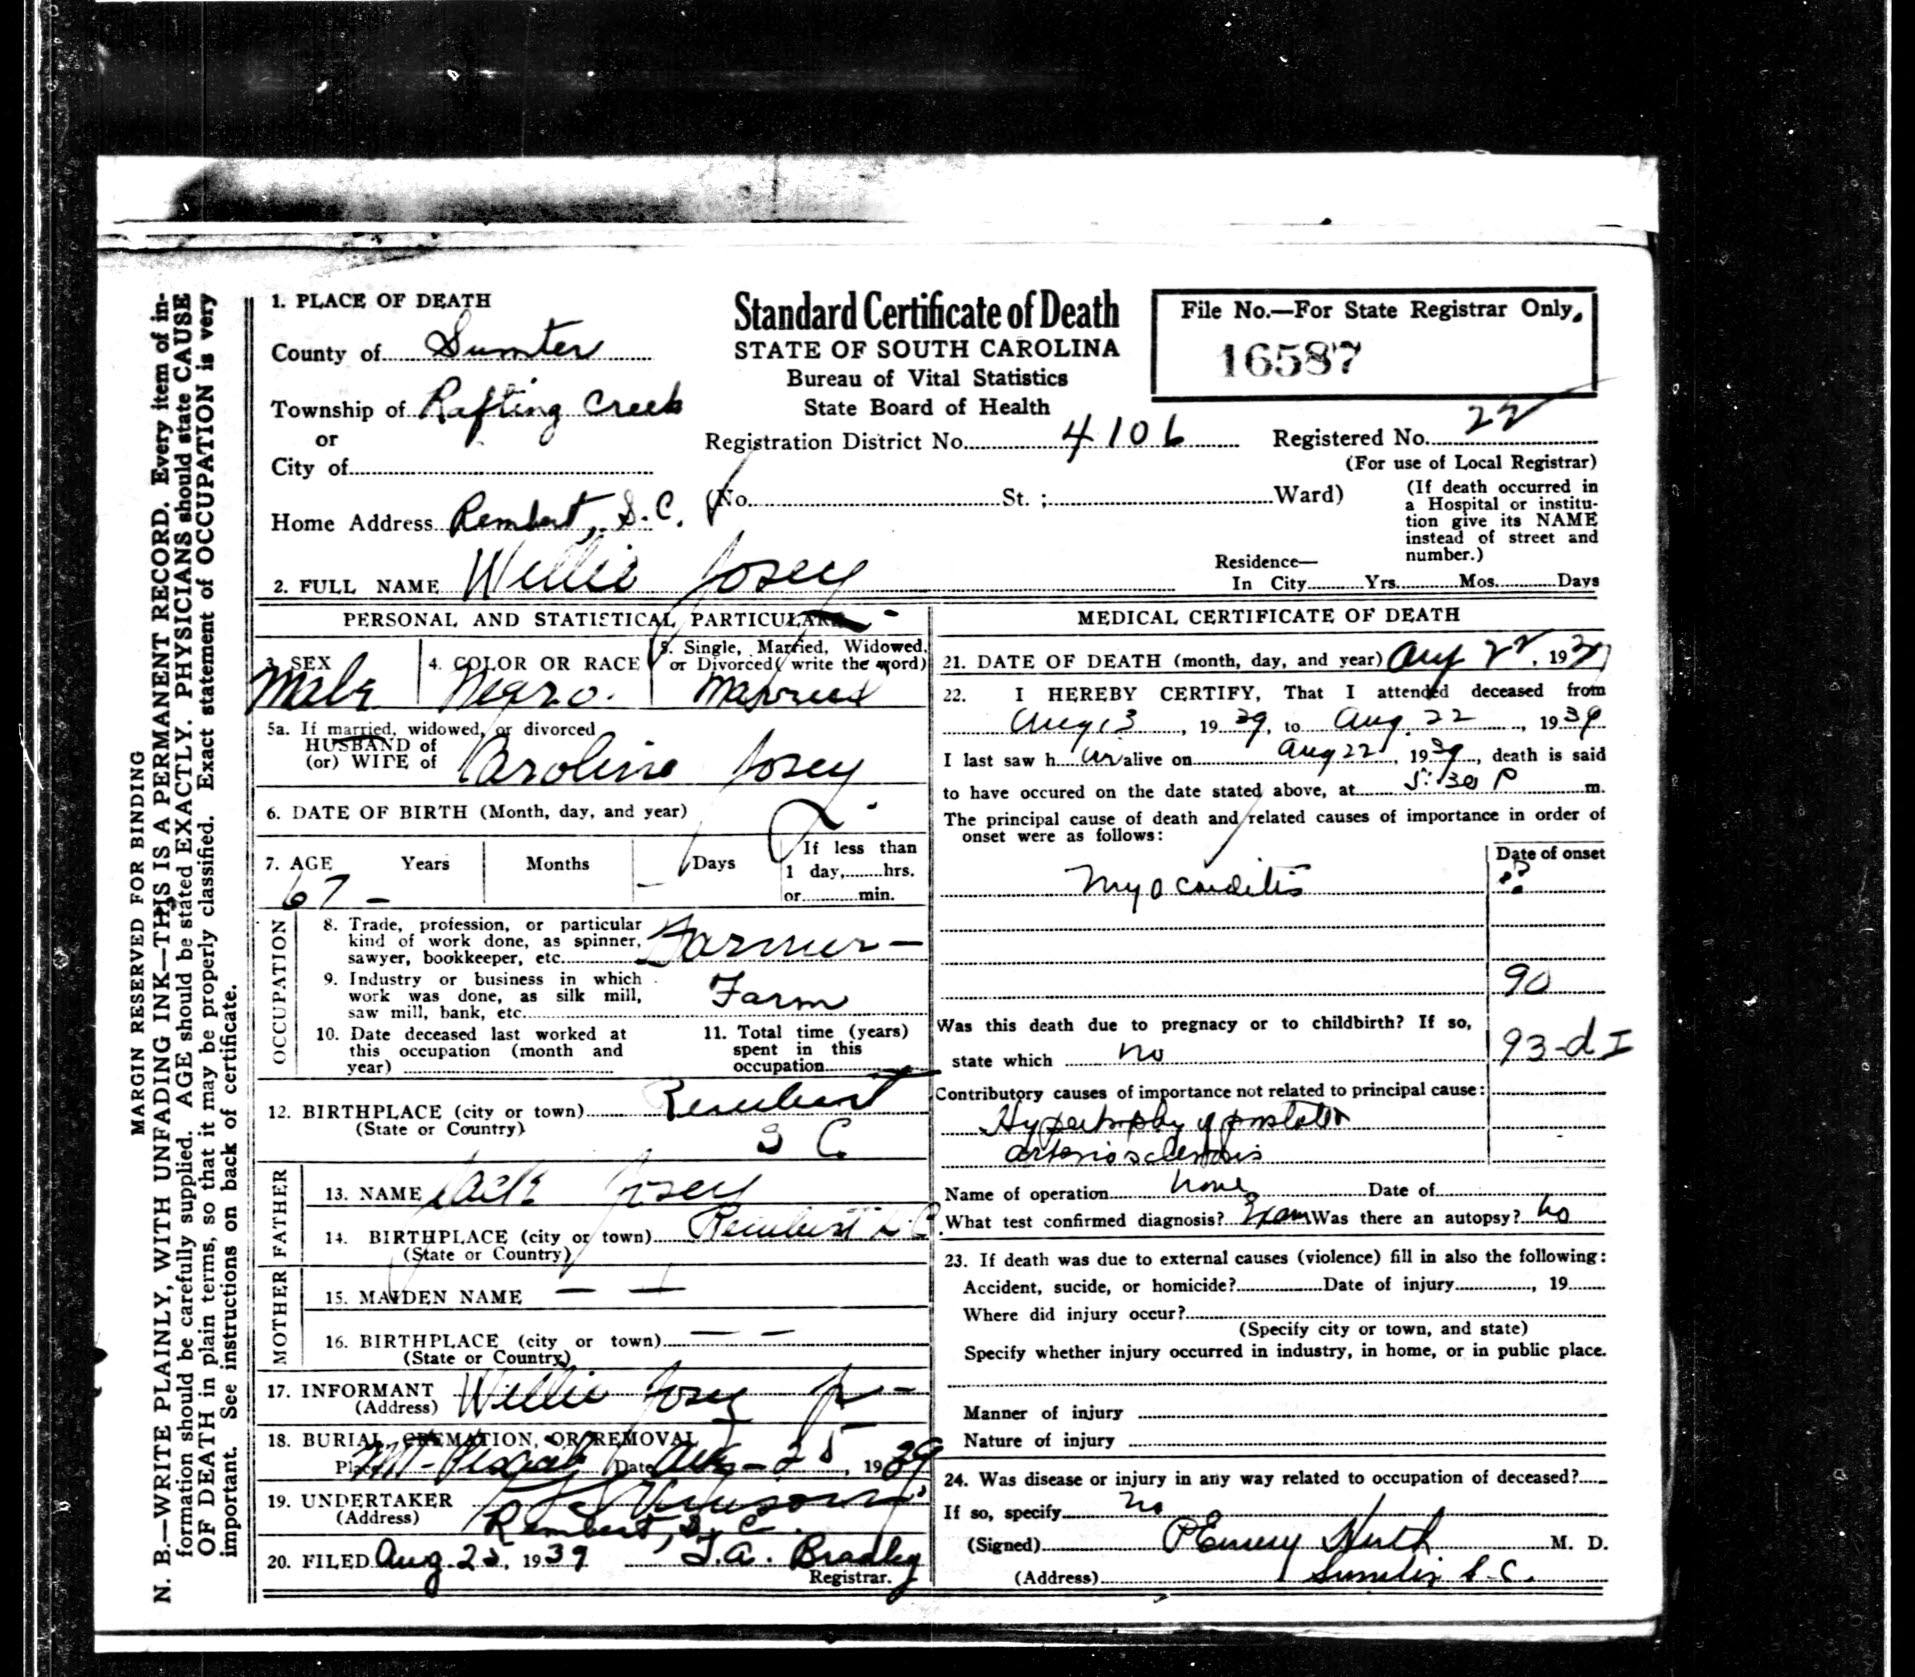 MARGIN RESERVED FOR BINDING
N. B.—WRITE PLAINLY, WITH UNFADING INK—THIS IS A PERMANENT RECORD. Every item of in-
formation should be carefully supplied. AGE should be stated EXACTLY. PHYSICIANS should state CAUSE
OF DEATH in plain terms, so that it may be properly classified. Exact statement of OCCUPATION is very
important. See instructions on back of certificate.
1. PLACE OF DEATH
County of Sumter
Township of Rafting Creek
or
City of
Home Address Rembert, S.C.
Standard Certificate of Death
STATE OF SOUTH CAROLINA
Bureau of Vital Statistics
State Board of Health
File No.—For State Registrar Only.
16587
Registration District No. 4106
Registered No. 22
(For use of Local Registrar)
(No. St.; Ward)
(If death occurred in
a Hospital or institu-
tion give its NAME
instead of street and
number.)
2. FULL NAME Willie Josey
Residence—
In City Yrs. Mos. Days
PERSONAL AND STATISTICAL PARTICULARS
3. SEX
Male
4. COLOR OR RACE
Negro.
5. Single, Married, Widowed,
or Divorced (write the word)
Married
5a. If married, widowed, or divorced
HUSBAND of
(or) WIFE of
Caroline Josey
6. DATE OF BIRTH (Month, day, and year)
7. AGE Years Months Days
67 -
If less than
1 day, hrs.
or min.
OCCUPATION
8. Trade, profession, or particular
kind of work done, as spinner,
sawyer, bookkeeper, etc. Farmer -
9. Industry or business in which
work was done, as silk mill,
saw mill, bank, etc. Farm
10. Date deceased last worked at
this occupation (month and
year)
11. Total time (years)
spent in this
occupation
12. BIRTHPLACE (city or town) Rembert
(State or Country) S C.
FATHER
13. NAME Jack Josey
14. BIRTHPLACE (city or town) Rembert S.C.
(State or Country)
MOTHER
15. MAIDEN NAME — —
16. BIRTHPLACE (city or town) — —
(State or Country)
17. INFORMANT Willie Josey Jr -
(Address)
18. BURIAL, CREMATION, OR REMOVAL
Place Mt. Pisgah Date Aug - 25, 1939
19. UNDERTAKER
(Address) Rembert, S. C.
20. FILED Aug 25, 1939 T.A. Bradley
Registrar.
MEDICAL CERTIFICATE OF DEATH
21. DATE OF DEATH (month, day, and year) Aug 22, 1939
22. I HEREBY CERTIFY, That I attended deceased from
Aug 13, 1939, to Aug. 22, 1939
I last saw h alive on Aug 22, 1939, death is said
to have occured on the date stated above, at 5:30 P m.
The principal cause of death and related causes of importance in order of
onset were as follows:
Date of onset
Myocarditis ??
90
Was this death due to pregnacy or to childbirth? If so,
state which no
93-d I
Contributory causes of importance not related to principal cause:
Hypertrophy of prostate
arteriosclerosis
Name of operation None Date of
What test confirmed diagnosis? Exam Was there an autopsy? No
23. If death was due to external causes (violence) fill in also the following:
Accident, sucide, or homicide? Date of injury , 19
Where did injury occur?
(Specify city or town, and state)
Specify whether injury occurred in industry, in home, or in public place.
Manner of injury
Nature of injury
24. Was disease or injury in any way related to occupation of deceased?
If so, specify No
(Signed) M. D.
(Address) Sumter S.C.